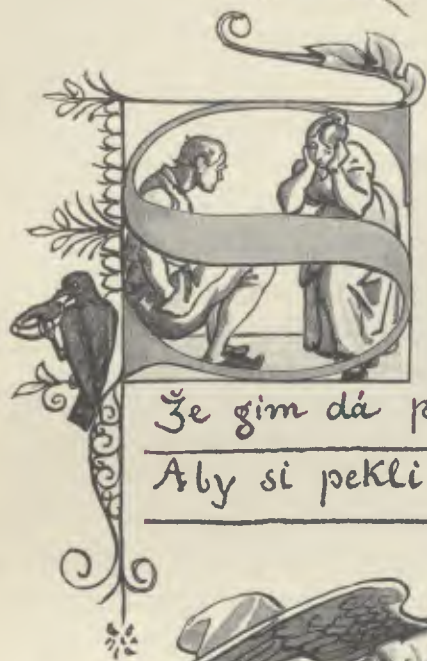 S
Že gim dá p
Aby si pekli